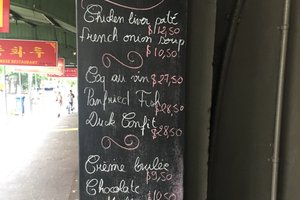 Chicken liver paté
$12,50
french onion soup
$10,50
Coq au vin $27,50
Panfried Fish
$28,50
Duck Confit
$28,50
Crème brulée
$9,50
Chocolate
$10,50